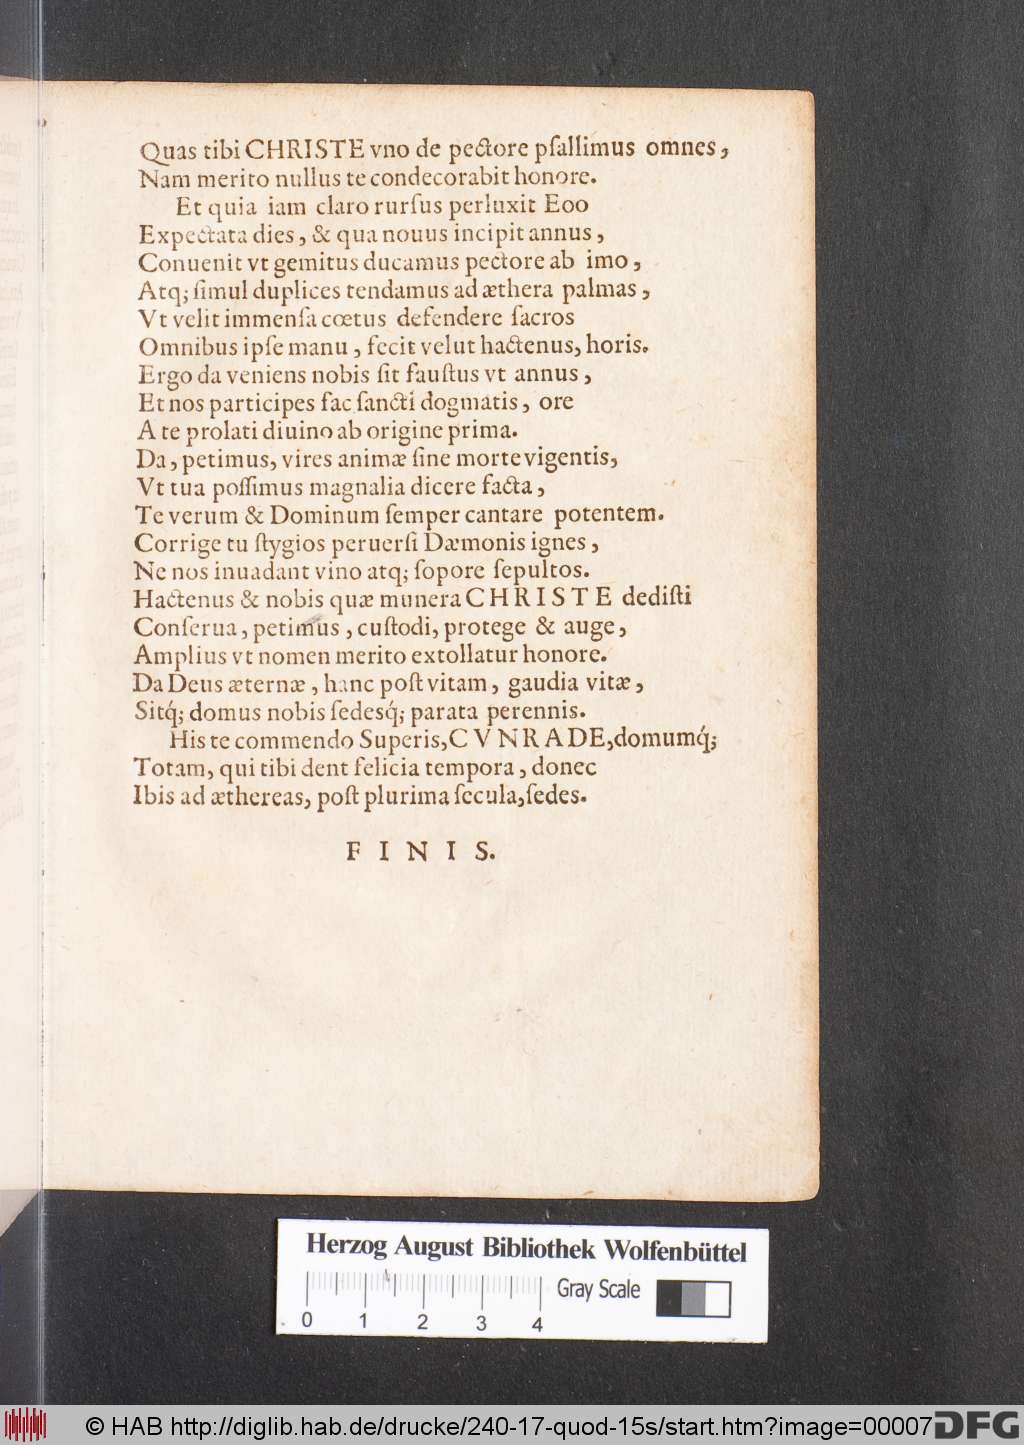 Quas tibi CHRISTE vno de pectore pſallimus omnes,
Nam merito nullus te condecorabit honore.
Et quia iam claro rurſus perluxit Eoo
Expectata dies, & qua nouus incipit annus,
Conuenit vt gemitus ducamus pectore ab imo,
Atq; ſimul duplices tendamus ad æthera palmas,
Vt velit immenſa cœtus defendere ſacros
Omnibus ipſe manu, fecit velut hactenus, horis.
Ergo da veniens nobis ſit fauſtus vt annus,
Et nos participes fac ſancti dogmatis, ore
A te prolati diuino ab origine prima.
Da, petimus, vires animæ ſine morte vigentis,
Vt tua poſſimus magnalia dicere facta,
Te verum & Dominum ſemper cantare potentem.
Corrige tu ſtygios peruerſi Dæmonis ignes,
Ne nos inuadant vino atq; ſopore ſepultos.
Hactenus & nobis quæ munera CHRISTE dediſti
Conſerua, petimus, cuſtodi, protege & auge,
Amplius vt nomen merito extollatur honore.
Da Deus æternæ, hanc poſt vitam, gaudia vitæ,
Sitq́; domus nobis ſedesq́; parata perennis.
His te commendo Superis, CVNRADE, domumq́;
Totam, qui tibi dent felicia tempora, donec
Ibis ad æthereas, poſt plurima ſecula, ſedes.
FINIS.
Herzog August Bibliothek Wolfenbüttel
Gray Scale
0 1 2 3 4
© HAB http://diglib.hab.de/drucke/240-17-quod-15s/start.htm?image=00007
DFG